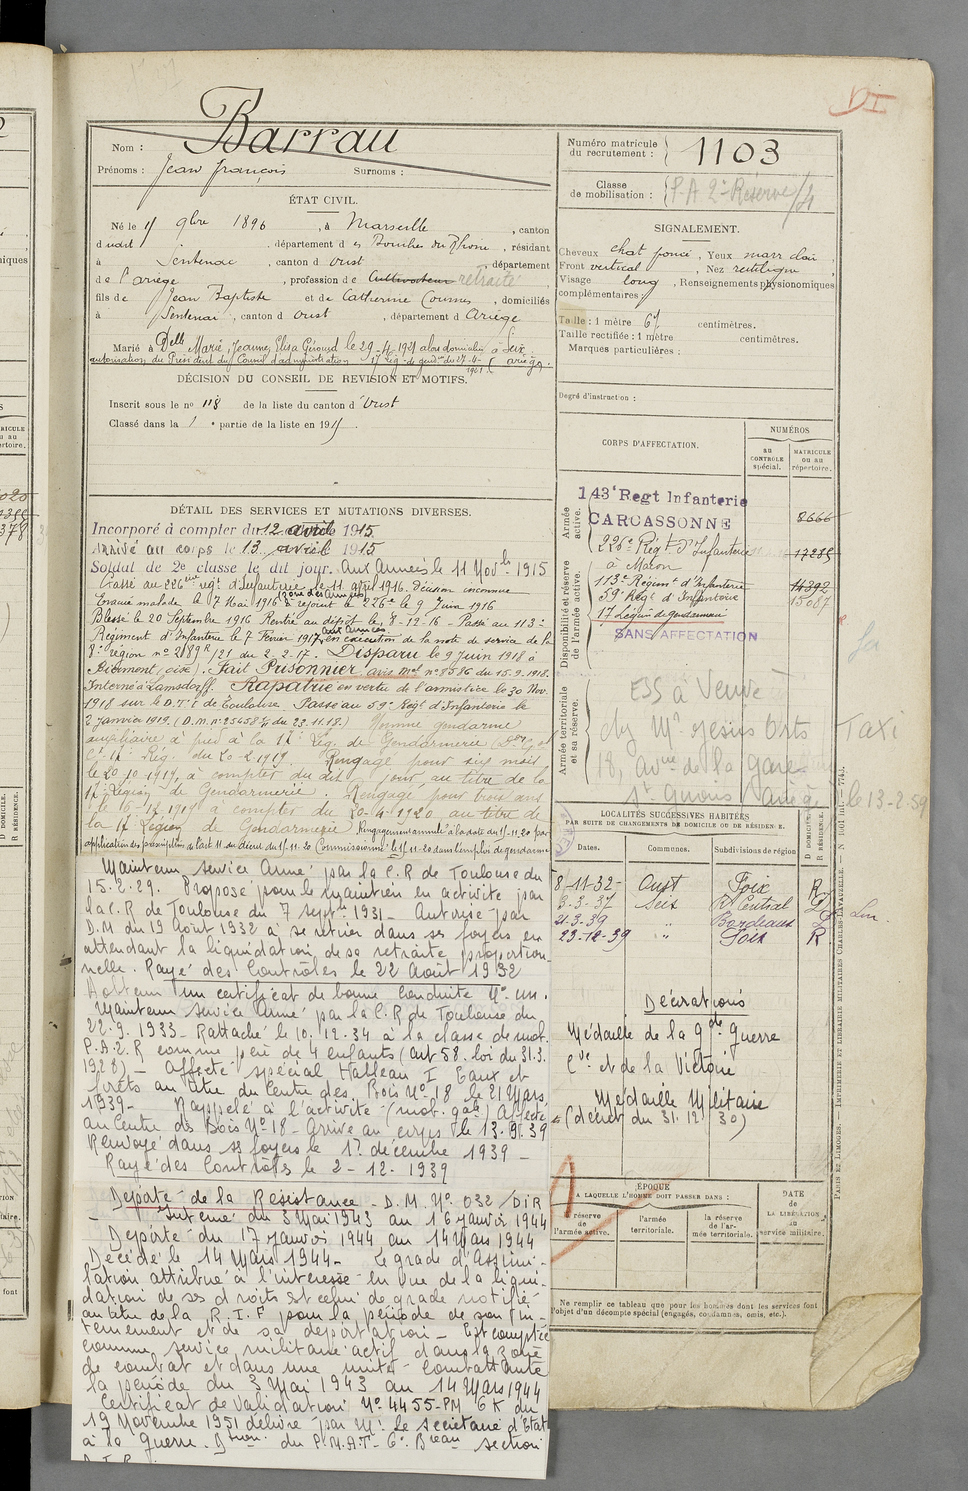 Barrau
Nom :
Prénoms : Jean François Surnoms :
ÉTAT CIVIL.
Né le 9bre 1896, à Marseille, canton
dudit, département des Bouches du Rhône, résidant
à Sentenac, canton d'Oust département
de l'Ariège, profession de Cultivateur retraité
fils de Jean Baptiste et de Catherine, domiciliés
à Sentenac, canton d'Oust, département d'Ariège
Marié à Delle Marie Jeanne Elisa Péroud le 29-4-1921 alors domiciliée à Seix
autorisation du Président du Conseil d'administration 17e Lég. de gendie du 27-4-1921 (Ariège)
DÉCISION DU CONSEIL DE REVISION ET MOTIFS.
Inscrit sous le no 118 de la liste du canton d'Oust
Classé dans la 1e partie de la liste en 1915
DÉTAIL DES SERVICES ET MUTATIONS DIVERSES.
Incorporé à compter du 12 avril 1915.
Arrivé au corps le 13 avril 1915
Soldat de 2e classe le dit jour. Aux Armées le 11 Novbre 1915
Passé au 226ème regt d'Infanterie le 11 avril 1916. Décision inconnue
Evacué malade le 7 Mai 1916 zone des Armées a rejoint le 226e le 9 Juin 1916
Blessé le 20 Septembre 1916 Rentré au dépôt le 8-12-16 - Passé au 113e
Régiment d'Infanterie le 7 Février 1917, aux armées en exécution de la note de service de la
8e région no 2889 R/21 du 2.2.17. Disparu le 9 Juin 1918 à
(oise). Fait Prisonnier avis mel no 8586 du 15.9.1918.
Interné à Lamsdorff. Rapatrié en vertu de l'armistice le 30 Nov.
1918 sur le D.T.I de Toulouse. Passé au 59e Régt d'Infanterie le
2 janvier 1919. (D.m. no 25458 du 23.11.18.) Nommé gendarme
auxiliaire à pied à la 17e Lég. de Gendarmerie
17e Rég. du 20-2-1919. Rengagé pour six mois
le 20-10-1919, à compter du dit jour, au titre de la
17e Légion de Gendarmerie. Rengagé pour trois ans
le 1919 à compter du 20-4-1920 au titre de
la 17e Légion de Gendarmerie. Rengagement annulé à la date du 1-11-20 par
application des prescriptions de l'art 11 du décret du 1-11-20 Commissionné le 1-11-20 dans l'emploi de gendarme
Maintenu service Armé par la C.R de Toulouse du
15.2.29. Proposé pour le maintien en activité par
la C.R de Toulouse du 7 septre 1931 - Autorisé par
D.M du 19 Août 1932 à se retirer dans ses foyers en
attendant la liquidation de sa retraite proportion-
nelle. Rayé des Contrôles le 22 Août 1932
A obtenu un certificat de bonne conduite No un.
Maintenu service Armé par la C.R de Toulouse du
22.9.1933 - Rattaché le 10.12.34 à la classe de mob.
P.A.2.R comme père de 4 enfants (art 58. loi du 31.3.
1928) - Affecté spécial Tableau I Eaux et
forêts au titre du Centre des Bois No 18 le 21 Mars
1939 - Rappelé à l'activité (mob. gale) Affecté
au Centre des Bois No 18 - Arrivé au corps le 13.9.39
Renvoyé dans ses foyers le 1er décembre 1939 -
Rayé des Contrôles le 2-12-1939
Déporté de la Résistance - D.M. No 032/DIR
- Interné du 3 Mai 1943 au 16 janvier 1944
Déporté du 17 janvier 1944 au 14 Mars 1944
Décédé le 14 Mars 1944 - Le grade d'assimi-
lation attribué à l'intéressé en vue de la liqui-
dation de ses droits est celui de grade notifié
au titre de la R.I.F pour la période de son in-
ternement et de sa déportation - Est comptée
comme service militaire actif dans la zone
de combat et dans une unité combattante
la période du 3 Mai 1943 au 14 Mars 1944
Certificat de validation No 4455-PM 6K du
19 Novembre 1951 délivré par Mr le secrétaire d'Etat
à la guerre. Dtion du P.M.A.T - 6e Breau section
Numéro matricule
du recrutement : 1103
Classe
de mobilisation : P.A 2e Réserve/4
SIGNALEMENT.
Cheveux chat foncé, Yeux marr clair,
Front vertical, Nez rectiligne,
Visage long, Renseignements physionomiques
complémentaires :
Taille : 1 mètre 67 centimètres.
Taille rectifiée : 1 mètre centimètres.
Marques particulières :
Degré d'instruction :
CORPS D'AFFECTATION.
NUMÉROS
AU CONTRÔLE spécial.
MATRICULE OU AU répertoire.
Armée active.
143e Regt Infanterie
CARCASSONNE
8666
226e Régt d'Infanterie 17235
à Mâcon
Disponibilité et réserve de l'armée active.
113e Régiment d'Infanterie 14392
59e Régt d'Infanterie 15087
17 Légion de gendarmerie
SANS AFFECTATION
Armée territoriale et sa réserve.
ESS à Veuve
chez Mr Orts Taxi
18, Avnue de la gare
St Girons Ariège le 13-2-59
LOCALITÉS SUCCESSIVES HABITÉES
PAR SUITE DE CHANGEMENTS DE DOMICILE OU DE RÉSIDENCE.
Dates. Communes. Subdivisions de région D DOMICILE. R RÉSIDENCE.
8-11-32 - Oust Foix R
3-3-37 Seix R Central
21-3-39 " Bordeaux
23-12-39 " Foix R
Décorations
Médaille de la Gde Guerre
Cve et de la Victoire
Médaille Militaire
(décret du 31.12.30)
ÉPOQUE
A LAQUELLE L'HOMME DOIT PASSER DANS :
DATE
de
LA LIBÉRATION
du
service militaire.
réserve
de
l'armée active.
l'armée
territoriale.
la réserve
de l'ar-
mée territoriale.
Ne remplir ce tableau que pour les hommes dont les services font
l'objet d'un décompte spécial (engagés, condamnés, omis, etc.).
PARIS ET LIMOGES. — IMPRIMERIE ET LIBRAIRIE MILITAIRES CHARLES-LAVAUZELLE.